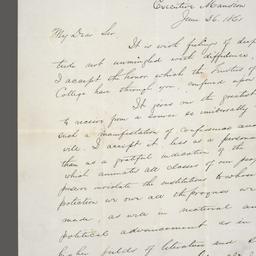 Executive Mansion
June 26. 1861
My Dear Sir
It is with feelings of deep
tude not unmingled with diffidence,
I accept the honor which the Trustees of
College have through you, conferred upon
It gives me the greatest
to receive from a source so
such a manifestation of confidence and
vile. I accept it, less as a personal
than as a grateful indication of the
which animates all classes of our peop
preserve inviolate the institutions to whose
protection we owe all the progress we
made, as well in material and
political advancement as in
higher fields of literature and